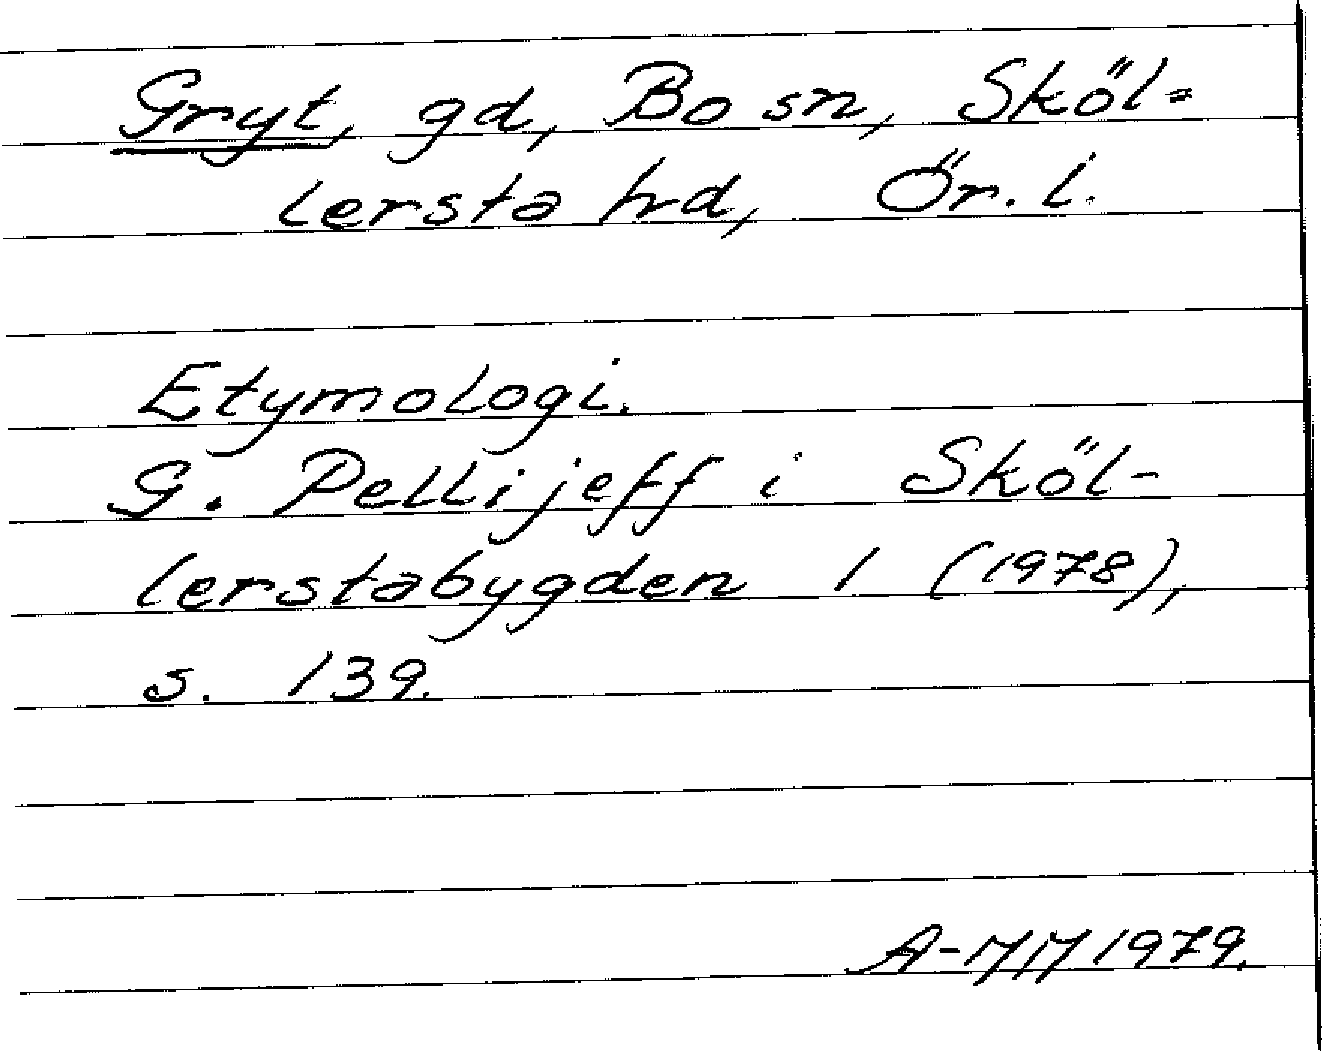 Gryt, gd, Bo sn, Sköl=
lersta hd, Ör. l.
Etymologi.
G. Pellijeff i Sköl-
lerstabygden 1 (1978),
s. 139.
A-MM 1979.